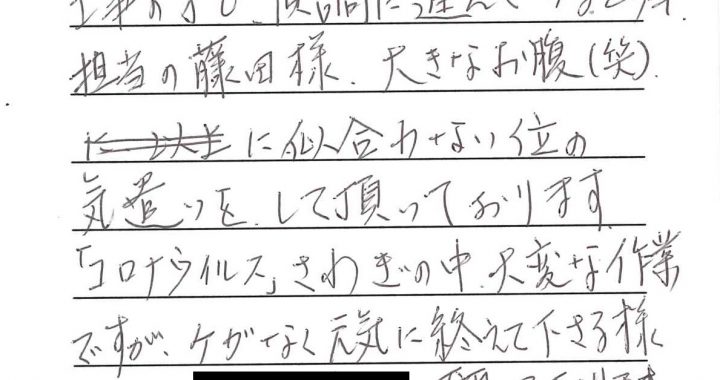 工事の方も、順調に進んで
担当の藤田様、大きなお腹(笑)
に似合わない位の
気遣いを、して頂いております
「コロナウイルス」さわぎの中、大変な作業
ですが、ケガなく元気に終えて下さる様